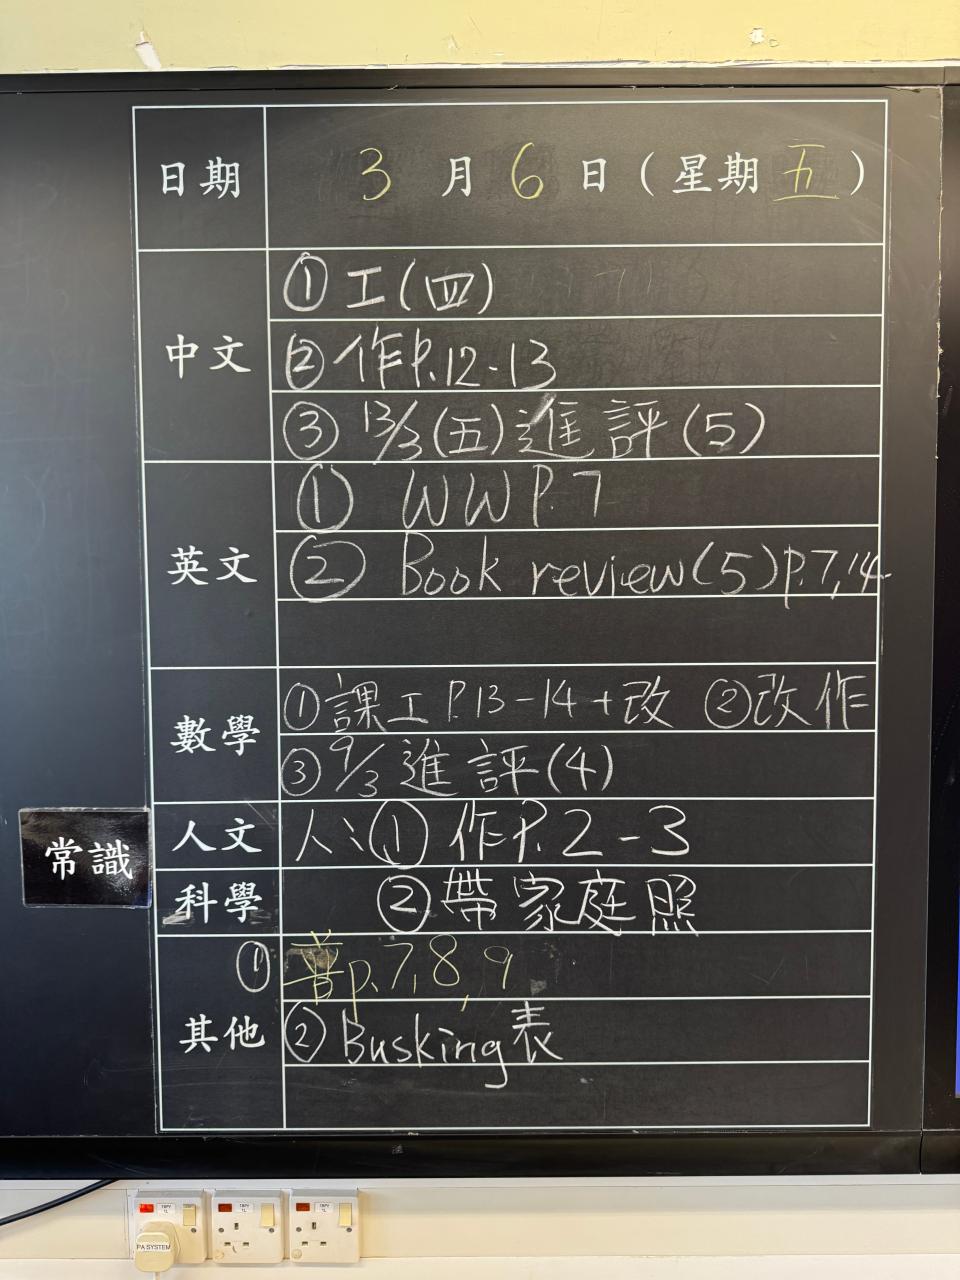 日期 3月6日（星期五）
中文 ①工(四)
②作P.12-13
③13/3(五)進評(5)
英文 ① WWP.7
② Book review(5)P.7,14
數學 ①課工P.13-14+改 ②改作
③9/3進評(4)
人文 人:①作P.2-3
常識
科學 ②帶家庭照
其他 ①普p.7,8,9
②Busking表
PA SYSTEM